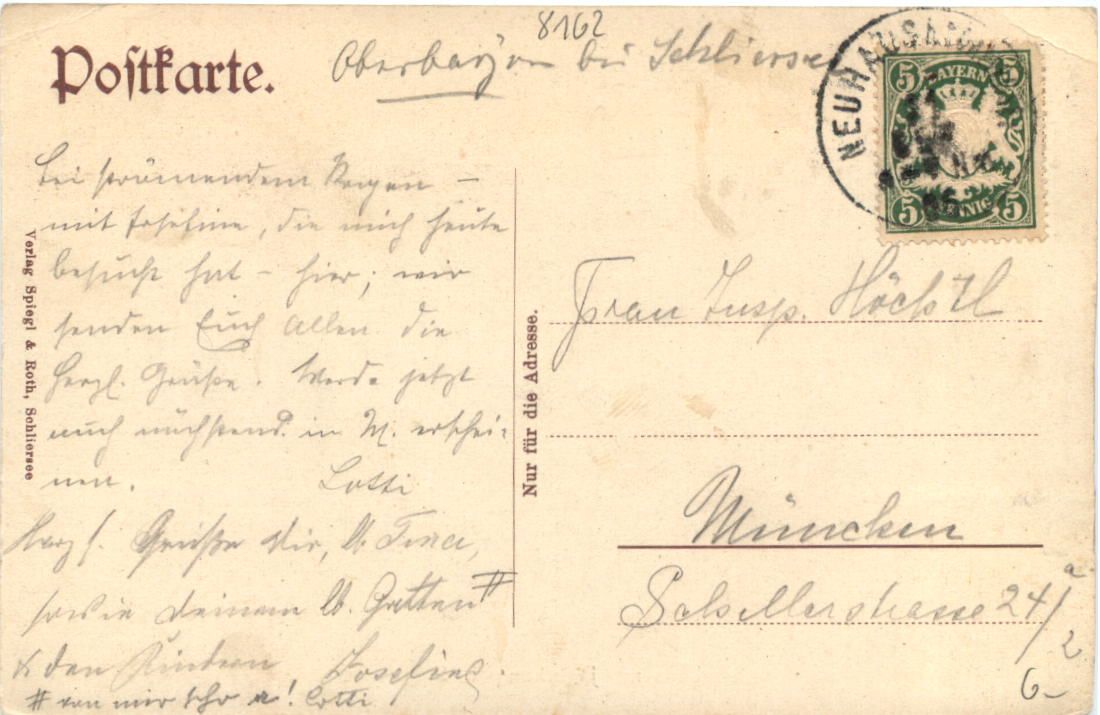 8162
Postkarte.
Oberbayern bei Schliersee
NEUHAUS
5 5
BAYERN
PFENNIG
5 5
Bei strömendem Regen –
mit Josefine, die mich heute
besucht hat – hier; wir
senden Euch Allen die
herzl. Grüße. Werde jetzt
auch nächstend. in M. erschei-
nen. Lotti
Herzl. Grüße Dir, lb.
sowie Deinem lb. Gatten #
& den Kindern Josefine.
# von mir Lotti
Verlag Spiegl & Roth, Schliersee
Nur für die Adresse.
Frau Insp. Höchstl
München
Schillerstrasse 24/2 a
6–